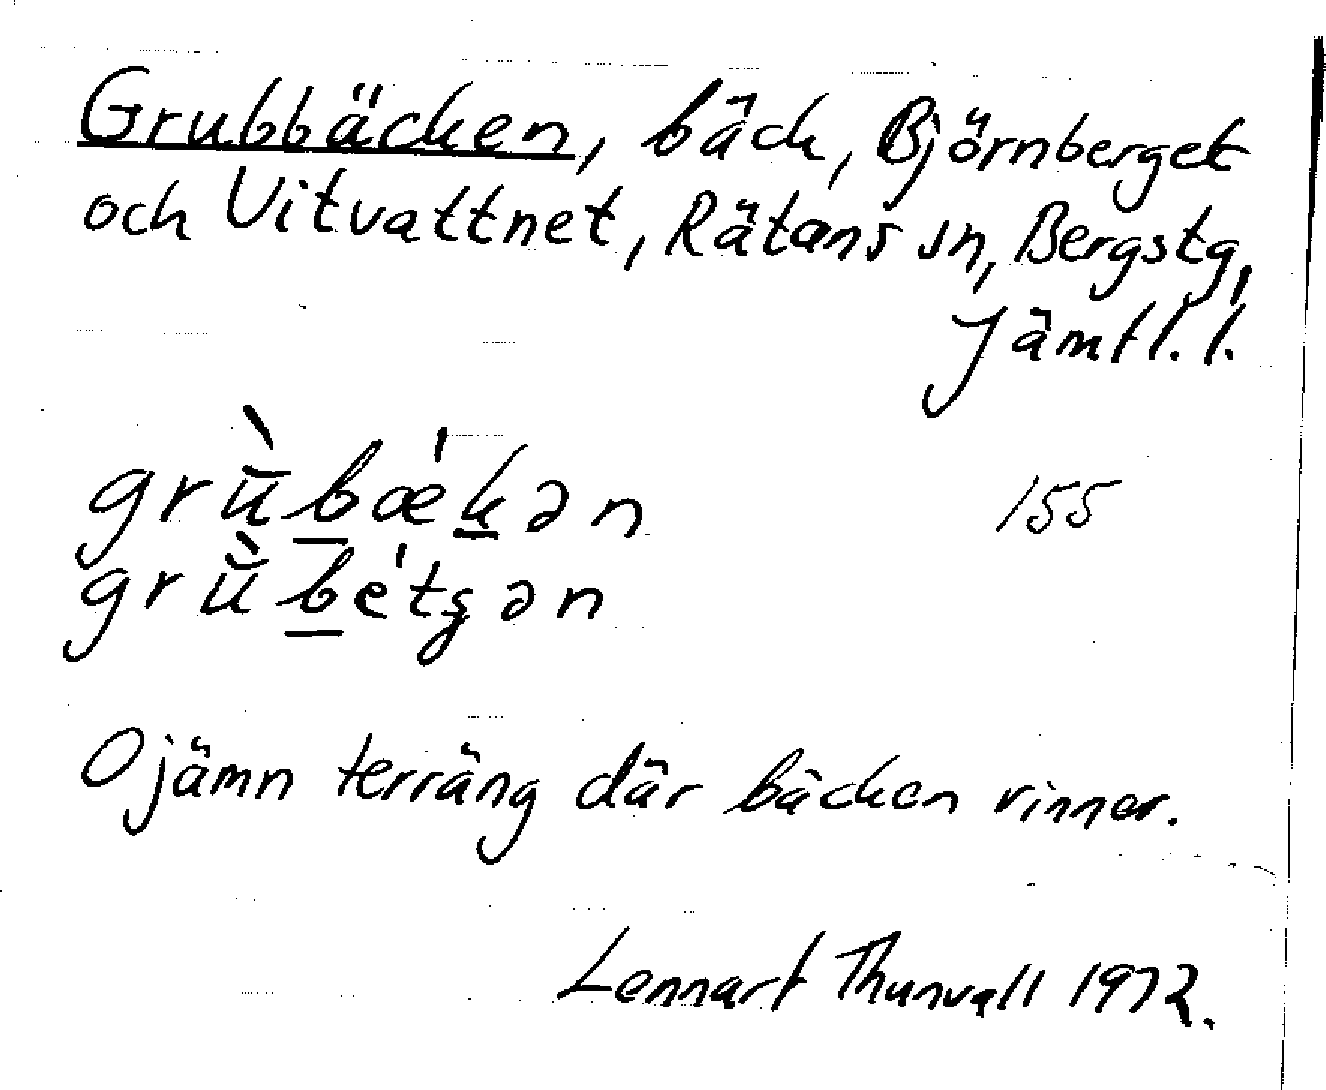 Grubbäcken, bäck, Björnberget
och Vitvattnet, Rätans sn, Bergs tg,
Jämtl. l.
grū̀b̲ǽk̲ən
155
grū̀b̲étʂən
Ojämn terräng där bäcken rinner.
Lennart Thunvall 1972.